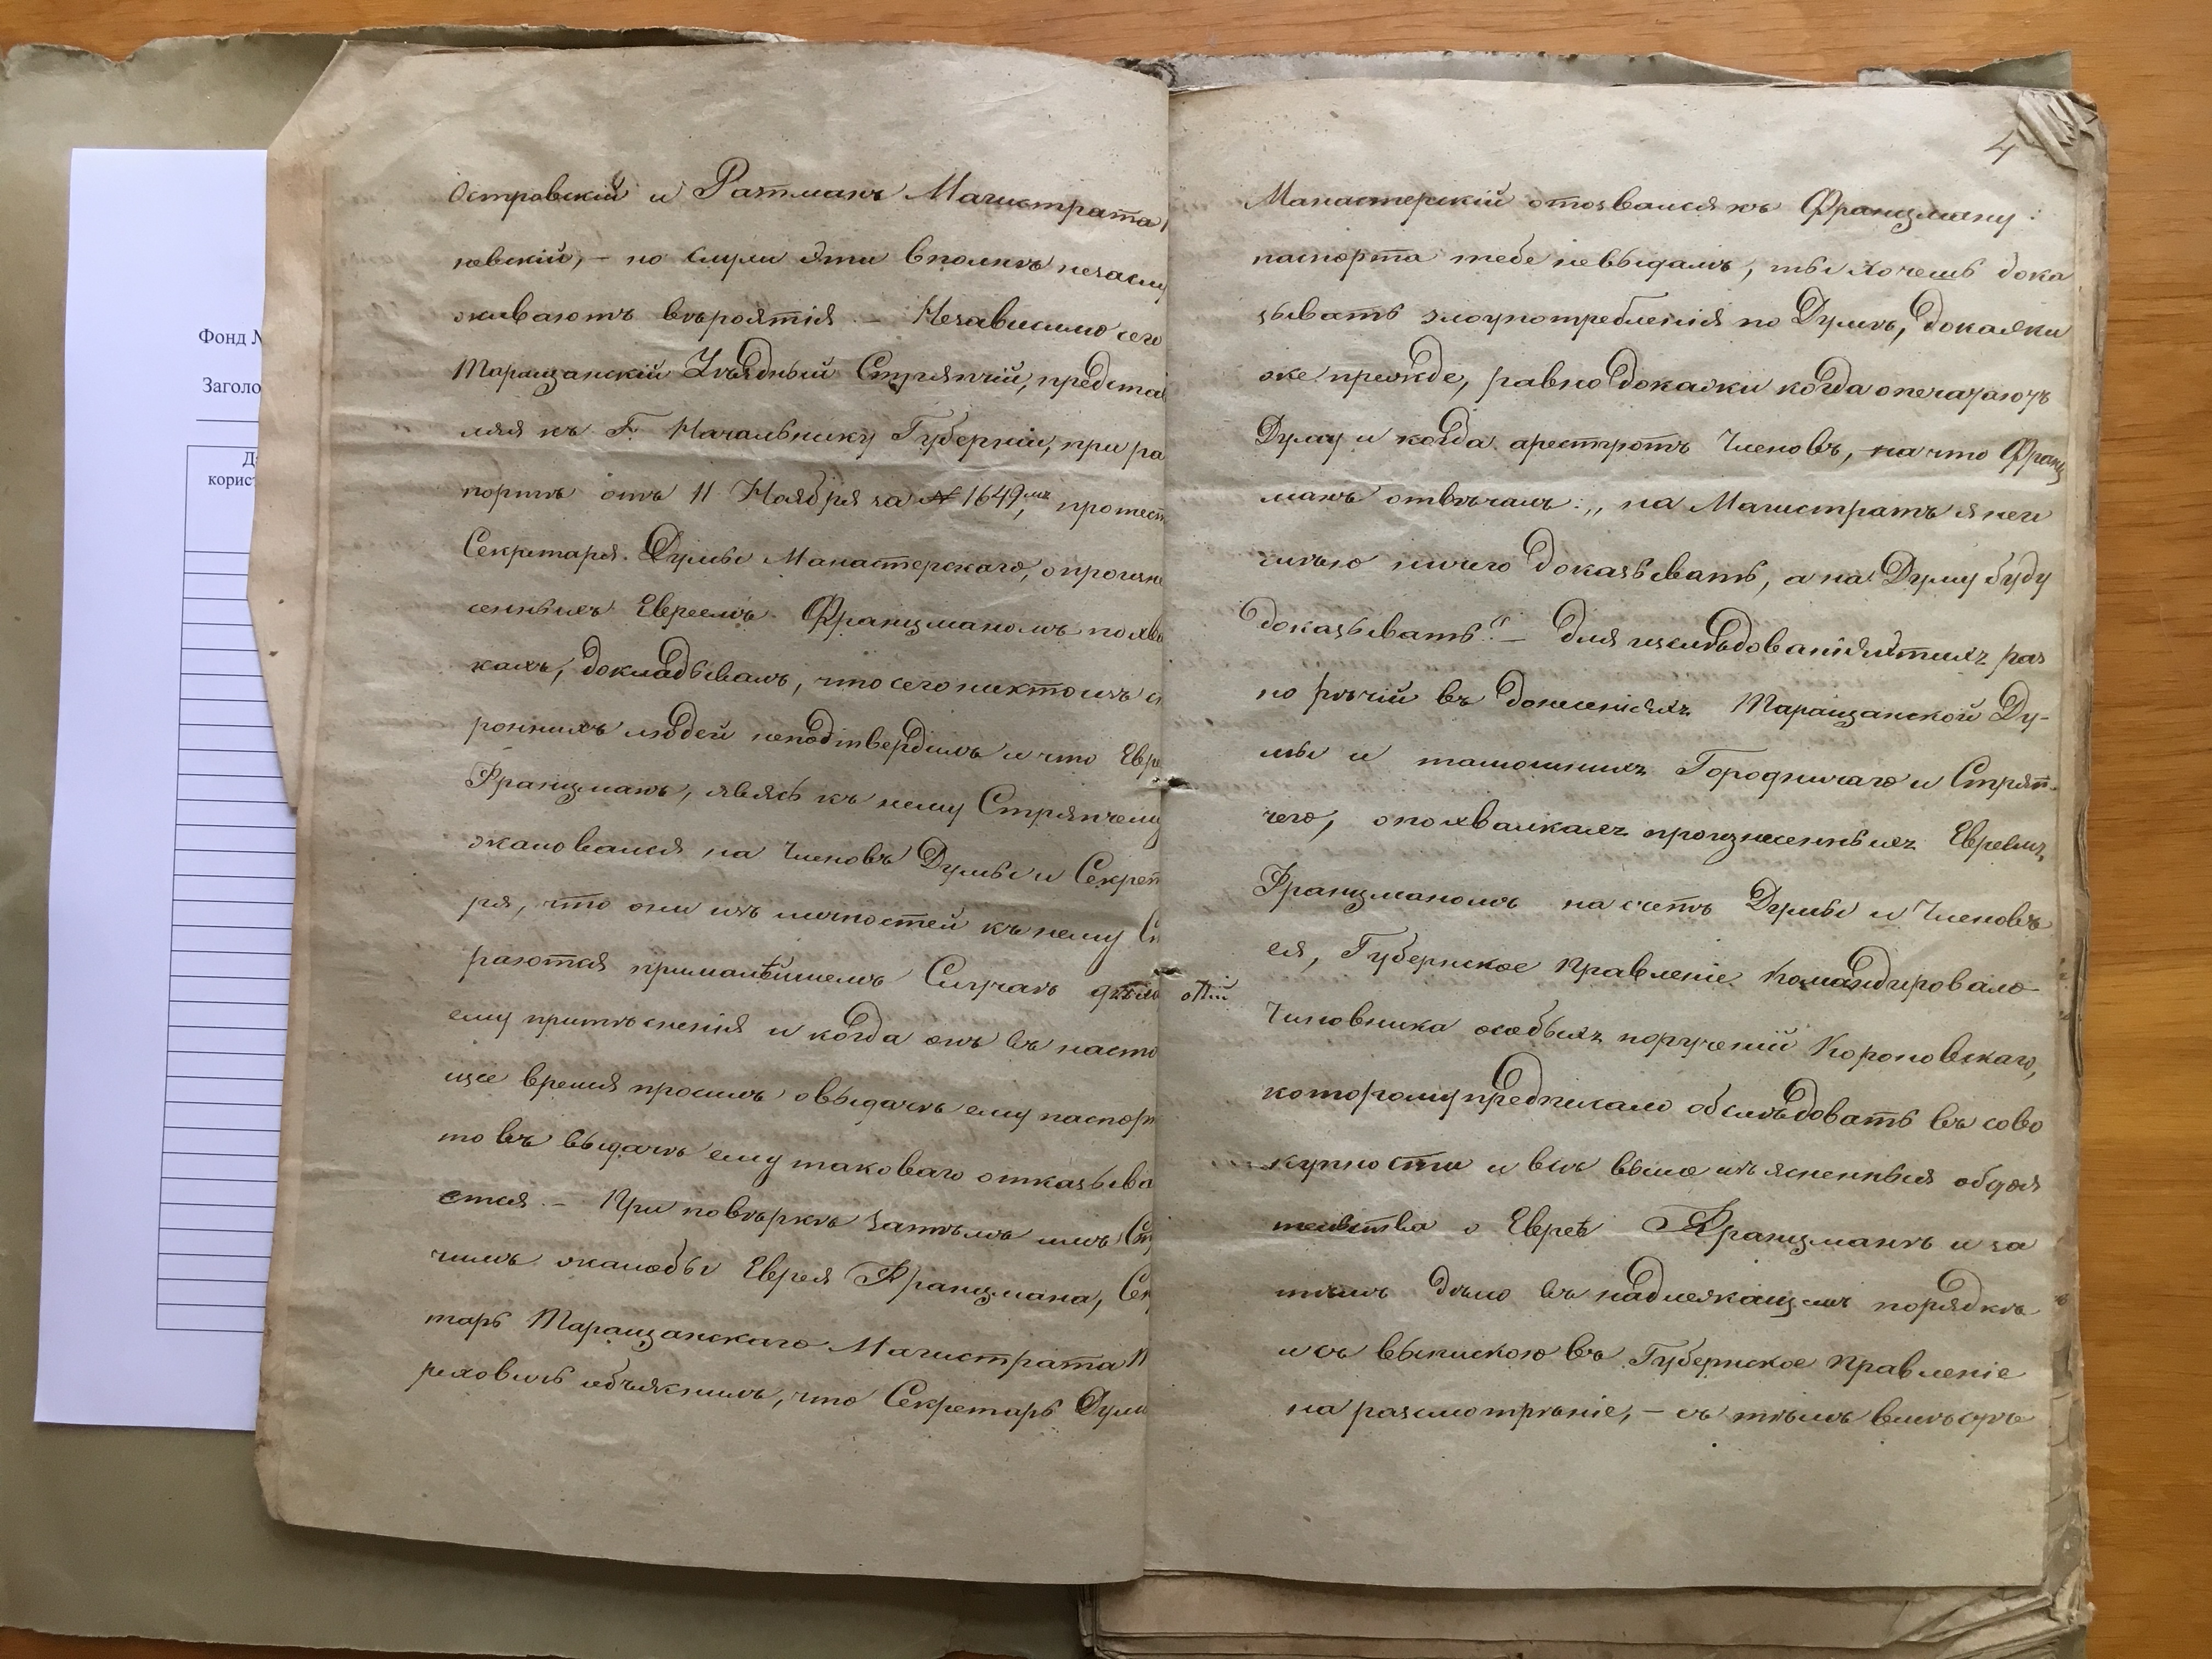 Фонд №
Заголо
Д
корист
Островскій и Ратманъ Магистрата
невскій, – но слухи эти вполнѣ незаслу
живаютъ вѣроятія. – Независимо сего
Таращанскій Уѣздный Стряпчій, представ
ляя къ Г. Начальнику Губерніи, при ра
портѣ отъ 11 Ноября за № 1649, протест
Секретаря Думы Манастерскаго, о произне
сенныхъ Евреемъ Францманомъ похвал
кахъ, докладывалъ, что сего никто изъ ст
роннихъ людей неподтвердилъ и что Евре
Францманъ, явясь къ нему Стряпчему
жаловался на Членовъ Думы и Секрет
ря, что они изъ личностей къ нему ст
раются прималѣйшемъ Случаѣ дѣла
ему притѣсненія и когда онъ въ насто
щее время просилъ овыдачѣ ему паспорт
то въ выдачѣ ему таковаго отказыва
ется. – При повѣркѣ затѣмъ имъ Стр
чимъ жалобы Еврея Францмана, Сек
тарь Таращанскаго Магистрата
реховичь объяснилъ, что Секретарь Думы
4
Манастерскій отозвался къ Францману:
паспорта тебе невыдамъ, ты хочешь дока
зывать злоупотребленія по Думѣ, докажи
же прежде, равно докажи когда опечатаютъ
Думу и когда арестуютъ Членовъ, на что Франц
манъ отвѣчалъ: „на Магистратъ я неи
ничего доказывать, а на Думу буду
доказывать“ – Для изслѣдованія этихъ раз
но рѣчій въ донесеніяхъ Таращанской Ду-
мы и тамошнихъ Городничаго и Стряп-
чего, о похвалкахъ произнесенныхъ Евреемъ
Францманомъ насчетъ Думы и Членовъ
ея, Губернское Правленіе Командировало
Чиновника особыхъ порученій Короновскаго,
которому предписало обслѣдовать въ сово
купности и всѣ выше изъясненныя обстоя
тельства о Евреѣ Францманѣ и за
тѣмъ дѣло въ надлежащемъ порядкѣ
и съ выпискою въ Губернское Правленіе
на разсмотрѣніе, – съ тѣмъ вмѣстѣ